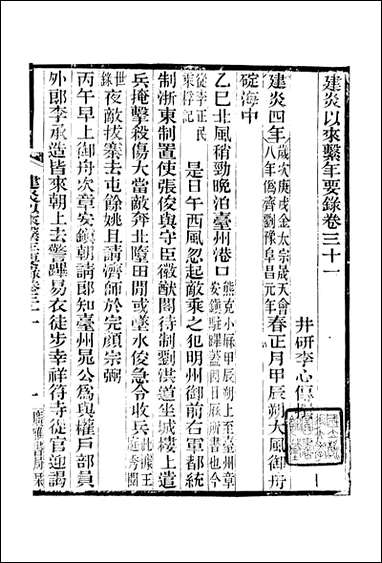 建炎以來繫年要錄卷三十一
井研李心傳撰
建炎四年歲次庚戌金太宗晟天會八年僞齊劉豫阜昌元年春正月甲辰朔大風御舟
碇海中
乙巳北風稍勁晚泊臺州港口熊克小厤甲辰朔上至臺州章安鎮駐蹕蓋閏日厤所書也今
從李正民乘桴記是日午西風忽起敵乘之犯明州御前右軍都統
制浙東制置使張俊與守臣徽猷閣待制劉洪道坐城樓上遣
兵掩擊殺傷大當敵奔北墮田閒或墜水俊急令收兵此據王廷秀閱
世錄夜敵拔寨去屯餘姚且請濟師於完顏宗弼
丙午早上御舟次章安鎮朝請郎知臺州晁公爲與權戶部員
外郎李承造皆來朝上去警蹕易衣徒步幸祥符寺從官迎謁
建炎以來繫年要錄卷三十一
一
廣雅書局栞